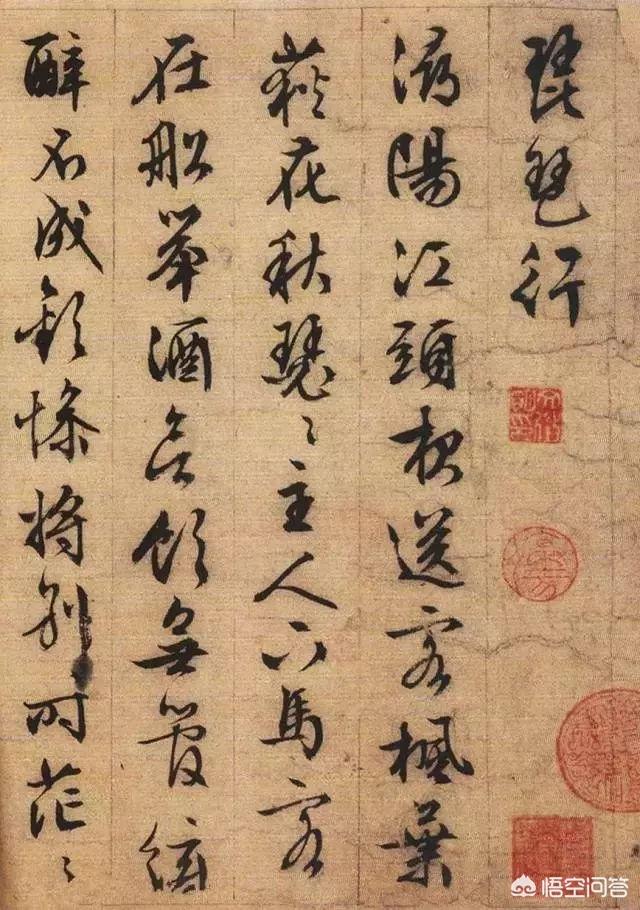 琵琶行
潯陽江頭夜送客楓葉
荻花秋瑟〻主人下馬客
在船舉酒欲飲無管絃
醉不成歡慘將別時茫〻
悟空问答